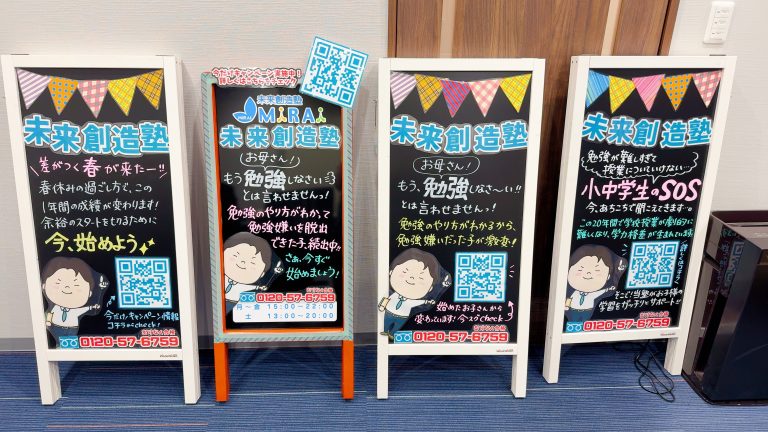 未来創造塾
差がつく春が来たー!!
春休みの過ごし方で、この
1年間の成績が変わります!
余裕のスタートをきるために
今、始めよう
今だけ!キャンペーン情報
コチラからcheck!
0120-57-6759
今だけキャンペーン実施中!
詳しくはこちらをチェック
未来創造塾
MiRAi
未来創造塾
お母さん!
もう勉強しなさい
とは言わせませんっ!
勉強のやり方がわかって
勉強嫌いを脱出
できた子、続出中!!
さぁ、今すぐ
始めましょう!
0120-57-6759
月～金 15:00～22:00
土 13:00～20:00
未来創造塾
お母さん!
もう、勉強しなさ～い!!
とは言わせませんっ!
勉強のやり方がわかるから、
勉強嫌いだった子が激変!
始めたお子さんから
変わっています!今スグcheck!
0120-57-6759
未来創造塾
勉強が難しすぎて
授業についていけない…
小中学生のSOS
今、あちこちで聞こえてきます…
この20年間で学校授業が劇的に
難しくなり、学力格差が生まれています
詳しくはコチラ
そこで!当塾がお子様の
学習をガッチリサポート!!
0120-57-6759